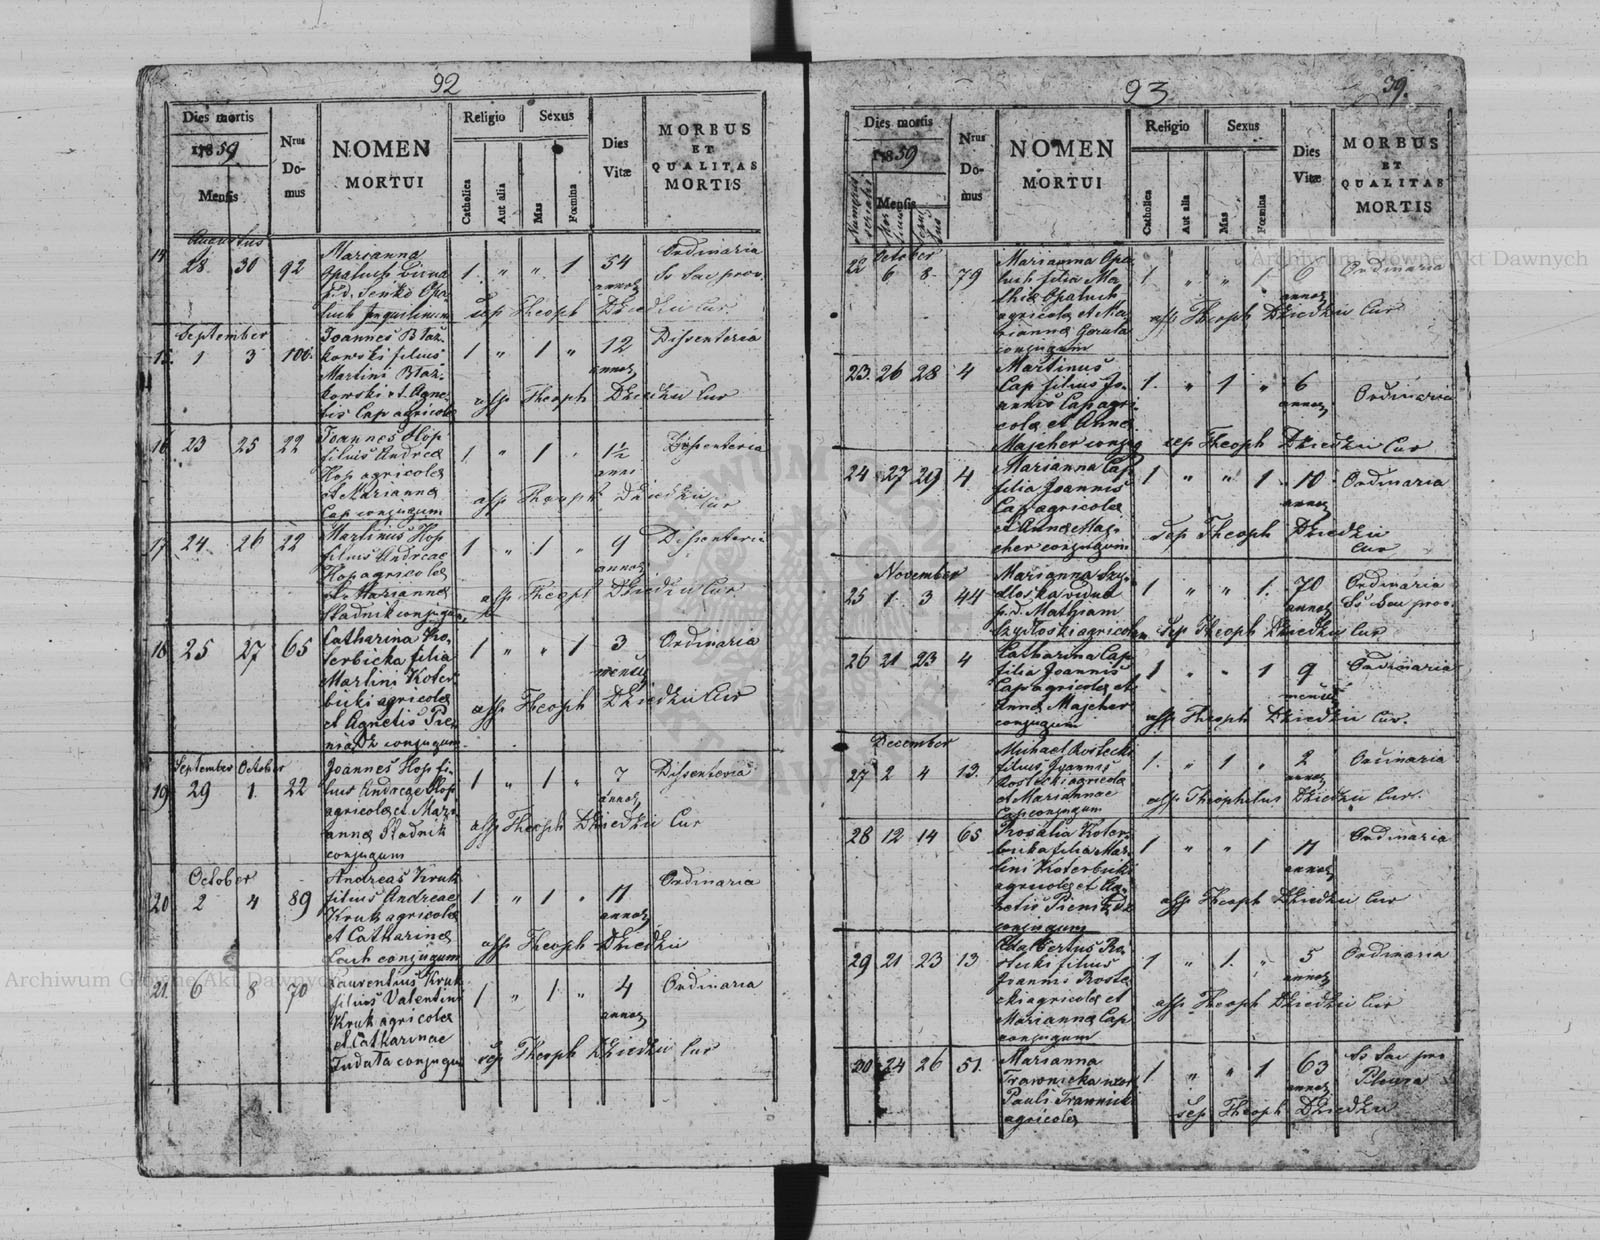 92
Dies mortis
1859
Mensis
Nrus
Do-
mus
NOMEN
MORTUI
Religio
Catholica
Aut alia
Sexus
Mas
Fœmina
Dies
Vitæ
MORBUS
ET
QUALITAS
MORTIS
Augustus
14 28 30 92
Marianna
Opaluch vidua
p.d. Senko Opa
luch
1 " " 1 54
annor
Ordinaria
Ss Sac prov.
sep Theoph Dziedzic Cur
September
15. 1 3 100.
Joannes Błaz-
kowski filius
Martini Błaz-
kowski et Agne-
tis Cap agricolæ
1 " 1 " 12
annor
Dissenteria
assp Theoph Dziedzic Cur
16 23 25 22
Joannes Hop
filius Andreæ
Hop agricolæ
et Mariannæ
Cap conjugum
1 " 1 1½
anni
Dissenteria
assp Theoph Dziedzic
Cur
17 24 26 22
Martinus Hop
filius Andreae
Hop agricolæ
et Mariannæ
Skadnik conjugum
1 " 1 " 9
annor
Dissenteria
assp Theoph Dziedzic Cur
18 25 27 65
Catharina Ko-
terbicka filia
Martini Koter
bicki agricolæ
et Agnetis Pie-
niądz conjugum
1 " " 1 3
Ordinaria
assp Theoph Dziedzic Cur
September October
19 29 1. 22
Joannes Hop fi-
lius Andreae Hop
agricolæ et Mari-
annæ Skadnik
conjugum
1 " 1 " 7
annor
Dissenteria
assp Theoph Dziedzic Cur
October
20 2 4 89
Andreas Kruk
filius Andreae
Kruk agricolæ
et Catharinæ
Lach conjugum
1 " 1 " 11
annor
Ordinaria
assp Theoph Dziedzic
21. 6 8 70
Laurentius Kruk
filius Valentini
Kruk agricolæ
et Catharinae
Indata conjugu
1 " 1 " 4
annor
Ordinaria
sep Theoph Dziedzic Cur
93
39.
Dies mortis
1859
Mensis
Numerus
serialis
Nrus
Do-
mus
NOMEN
MORTUI
Religio
Catholica
Aut alia
Sexus
Mas
Fœmina
Dies
Vitæ
MORBUS
ET
QUALITAS
MORTIS
October
22 6 8 79
Marianna Opa
luch filia Ma
thiæ Opaluch
agricolæ et Ma
riannæ
conjugum
1 " " 1 6
annor
Ordinaria
assp Theoph Dziedzic Cur
23. 26 28 4
Martinus
Cap filius Jo-
annis Cap agri-
colæ et Annæ
Majcher conjug
1. " 1 " 6
annor
Ordinaria
sep Theoph Dziedzic Cur
24 27 29 4
Marianna Cap
filia Joannis
Cap agricolæ
et Annæ Maj-
cher conjugum
1 " " 1 10
annor
Ordinaria
sep Theoph Dziedzic
Cur
November
25 1. 3 44
Marianna Szy-
dłoska vidua
p.d. Mathiam
Szydłoski agricolam
1 " " 1. 70
annor
Ordinaria
Ss Sac prov.
Sep Theoph Dziedzic Cur
26 21 23 4
Catharina Cap
filia Joannis
Cap agricolæ et
Annæ Majcher
conjugum
1 " " 1 9
Ordinaria
assp Theoph Dziedzic Cur.
December
27 2 4 13.
Michael Rostecki
filius Joannis
Rostecki agricolæ
et Mariannae
Cap conjugum
1. " 1 " 2
annor
Ordinaria
assp Theophilus Dziedzic Cur.
28 12 14 65
Rosalia Koter-
bicka filia Mar-
tini Koterbicki
agricolæ et Ag-
netis Pieniądz
conjugum
1 " " 1 11
annor
Ordinaria
assp Theoph Dziedzic Cur
29 21 23 13
Adalbertus Ro-
stecki filius
Joannis Roste-
cki agricolæ et
Mariannæ Cap
conjugum
1 " 1. " 5
annor
Ordinaria
assp Theoph Dziedzic Cur
30 24 26 51.
Marianna
Trawnicka uxor
Pauli Trawnick
agricolæ
1. " " 1 63
annor
Ss Sac pro
sep Theoph Dziedzic
Archiwum Główne Akt Dawnych
Archiwum Główne Akt Dawnych